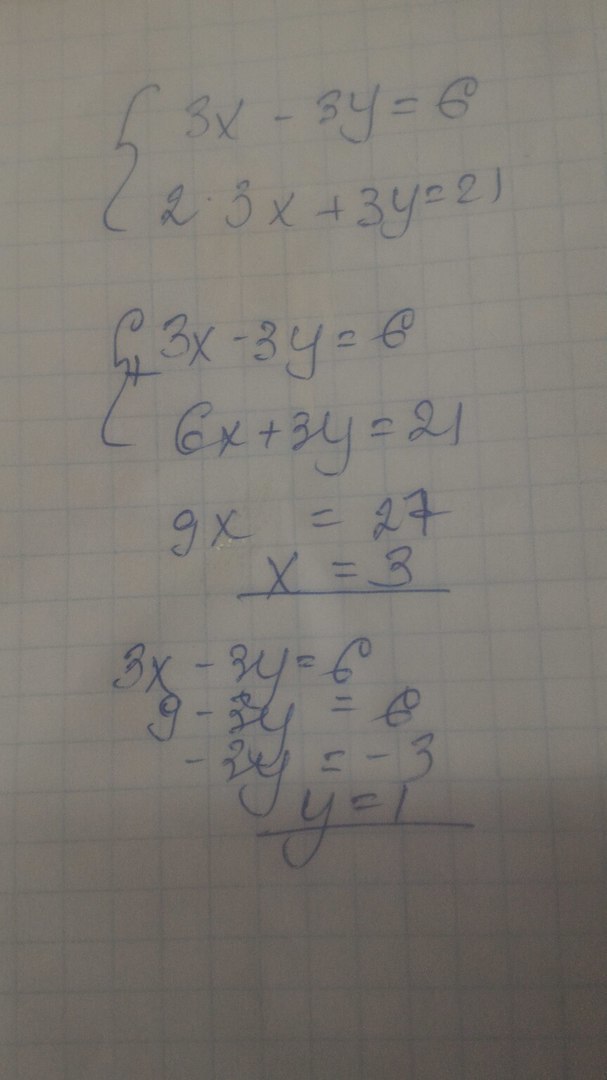 { 3x - 3y = 6
2·3x + 3y = 21
{ + 3x - 3y = 6
6x + 3y = 21
9x = 27
x = 3
3x - 3y = 6
9 - 3y = 6
- 3y = - 3
y = 1